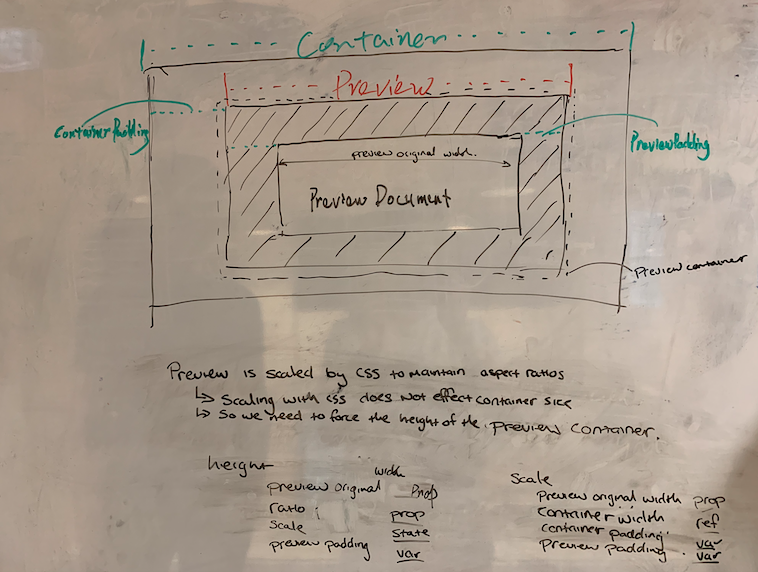 Container
Preview
Container Padding
Preview Padding
preview original width.
Preview Document
Preview container
Preview is scaled by CSS to maintain aspect ratios
↳ Scaling with CSS does not effect container size
↳ So we need to force the height of the preview container.
height
width
preview original prop
ratio : prop
scale state
preview padding var
Scale
Preview original width prop
Container width ref
Container padding var
Preview padding var